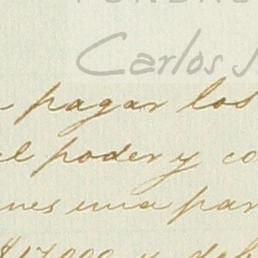 Carlos J.
pagar los
el poder y co
nes una par
$17,000 y deb